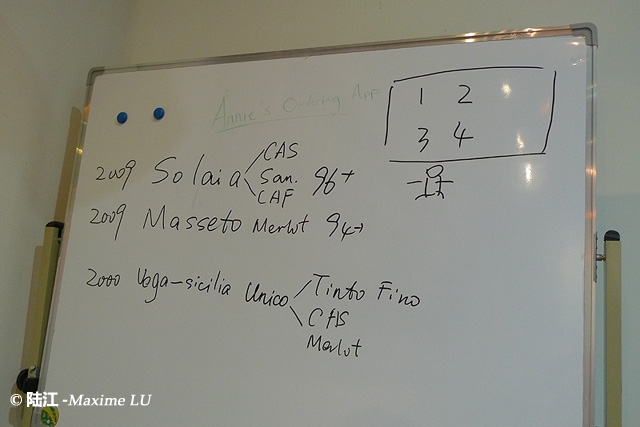 Annie's Ordering App
1 2
3 4
CAS
2009 Solaia San. 96+
CAF
2009 Masseto Merlot 94+
2000 Vega-sicilia Unico Tinto Fino
CAS
Merlot
© 陆江 -Maxime LU